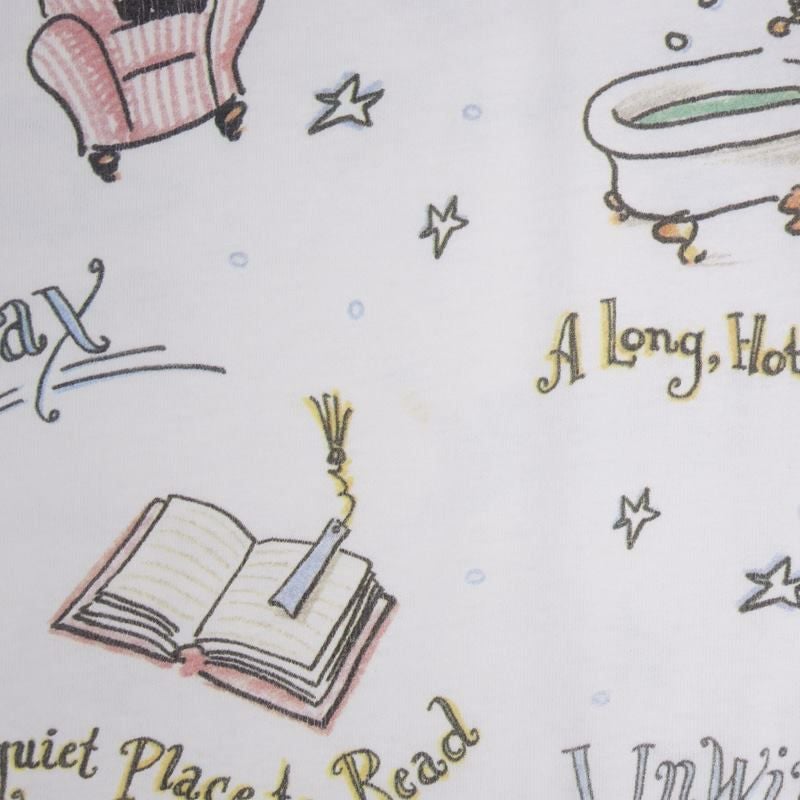 ax
A Long, Hot
quiet Place to Read
UnWi